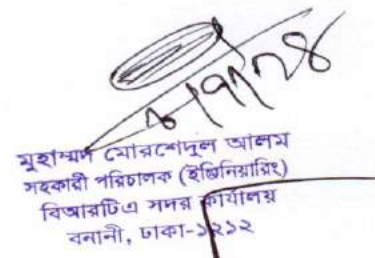 মুহাম্মদ মোরশেদুল আলম
সহকারী পরিচালক (ইঞ্জিনিয়ারিং)
বিআরটিএ সদর কার্যালয়
বনানী, ঢাকা-১২১২